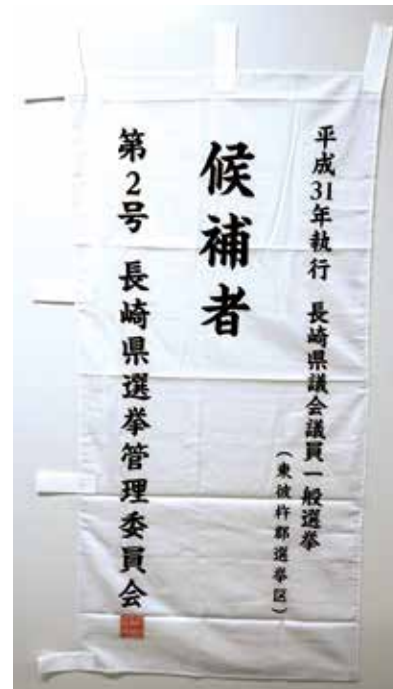 平成31年執行 長崎県議会議員一般選挙
（東彼杵郡選挙区）
候補者
第2号 長崎県選挙管理委員会